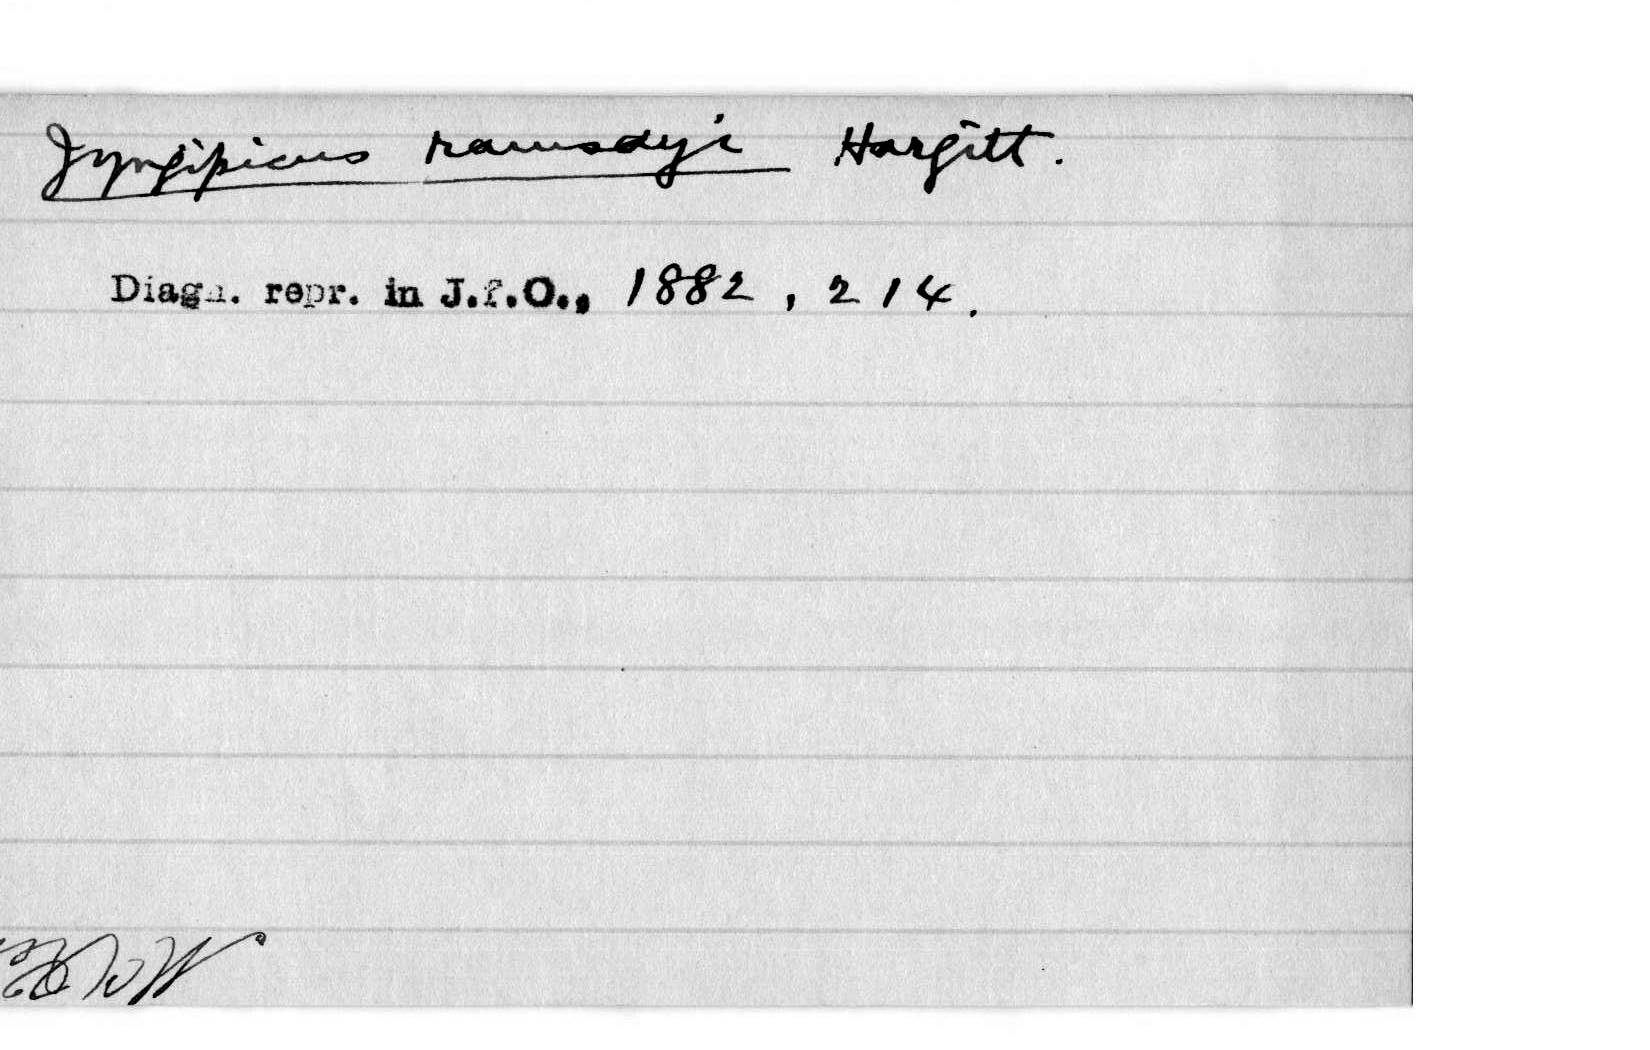 Iyngipicus ramsayi Hargitt.
Diagn. repr. in J.f.O., 1882, 214.